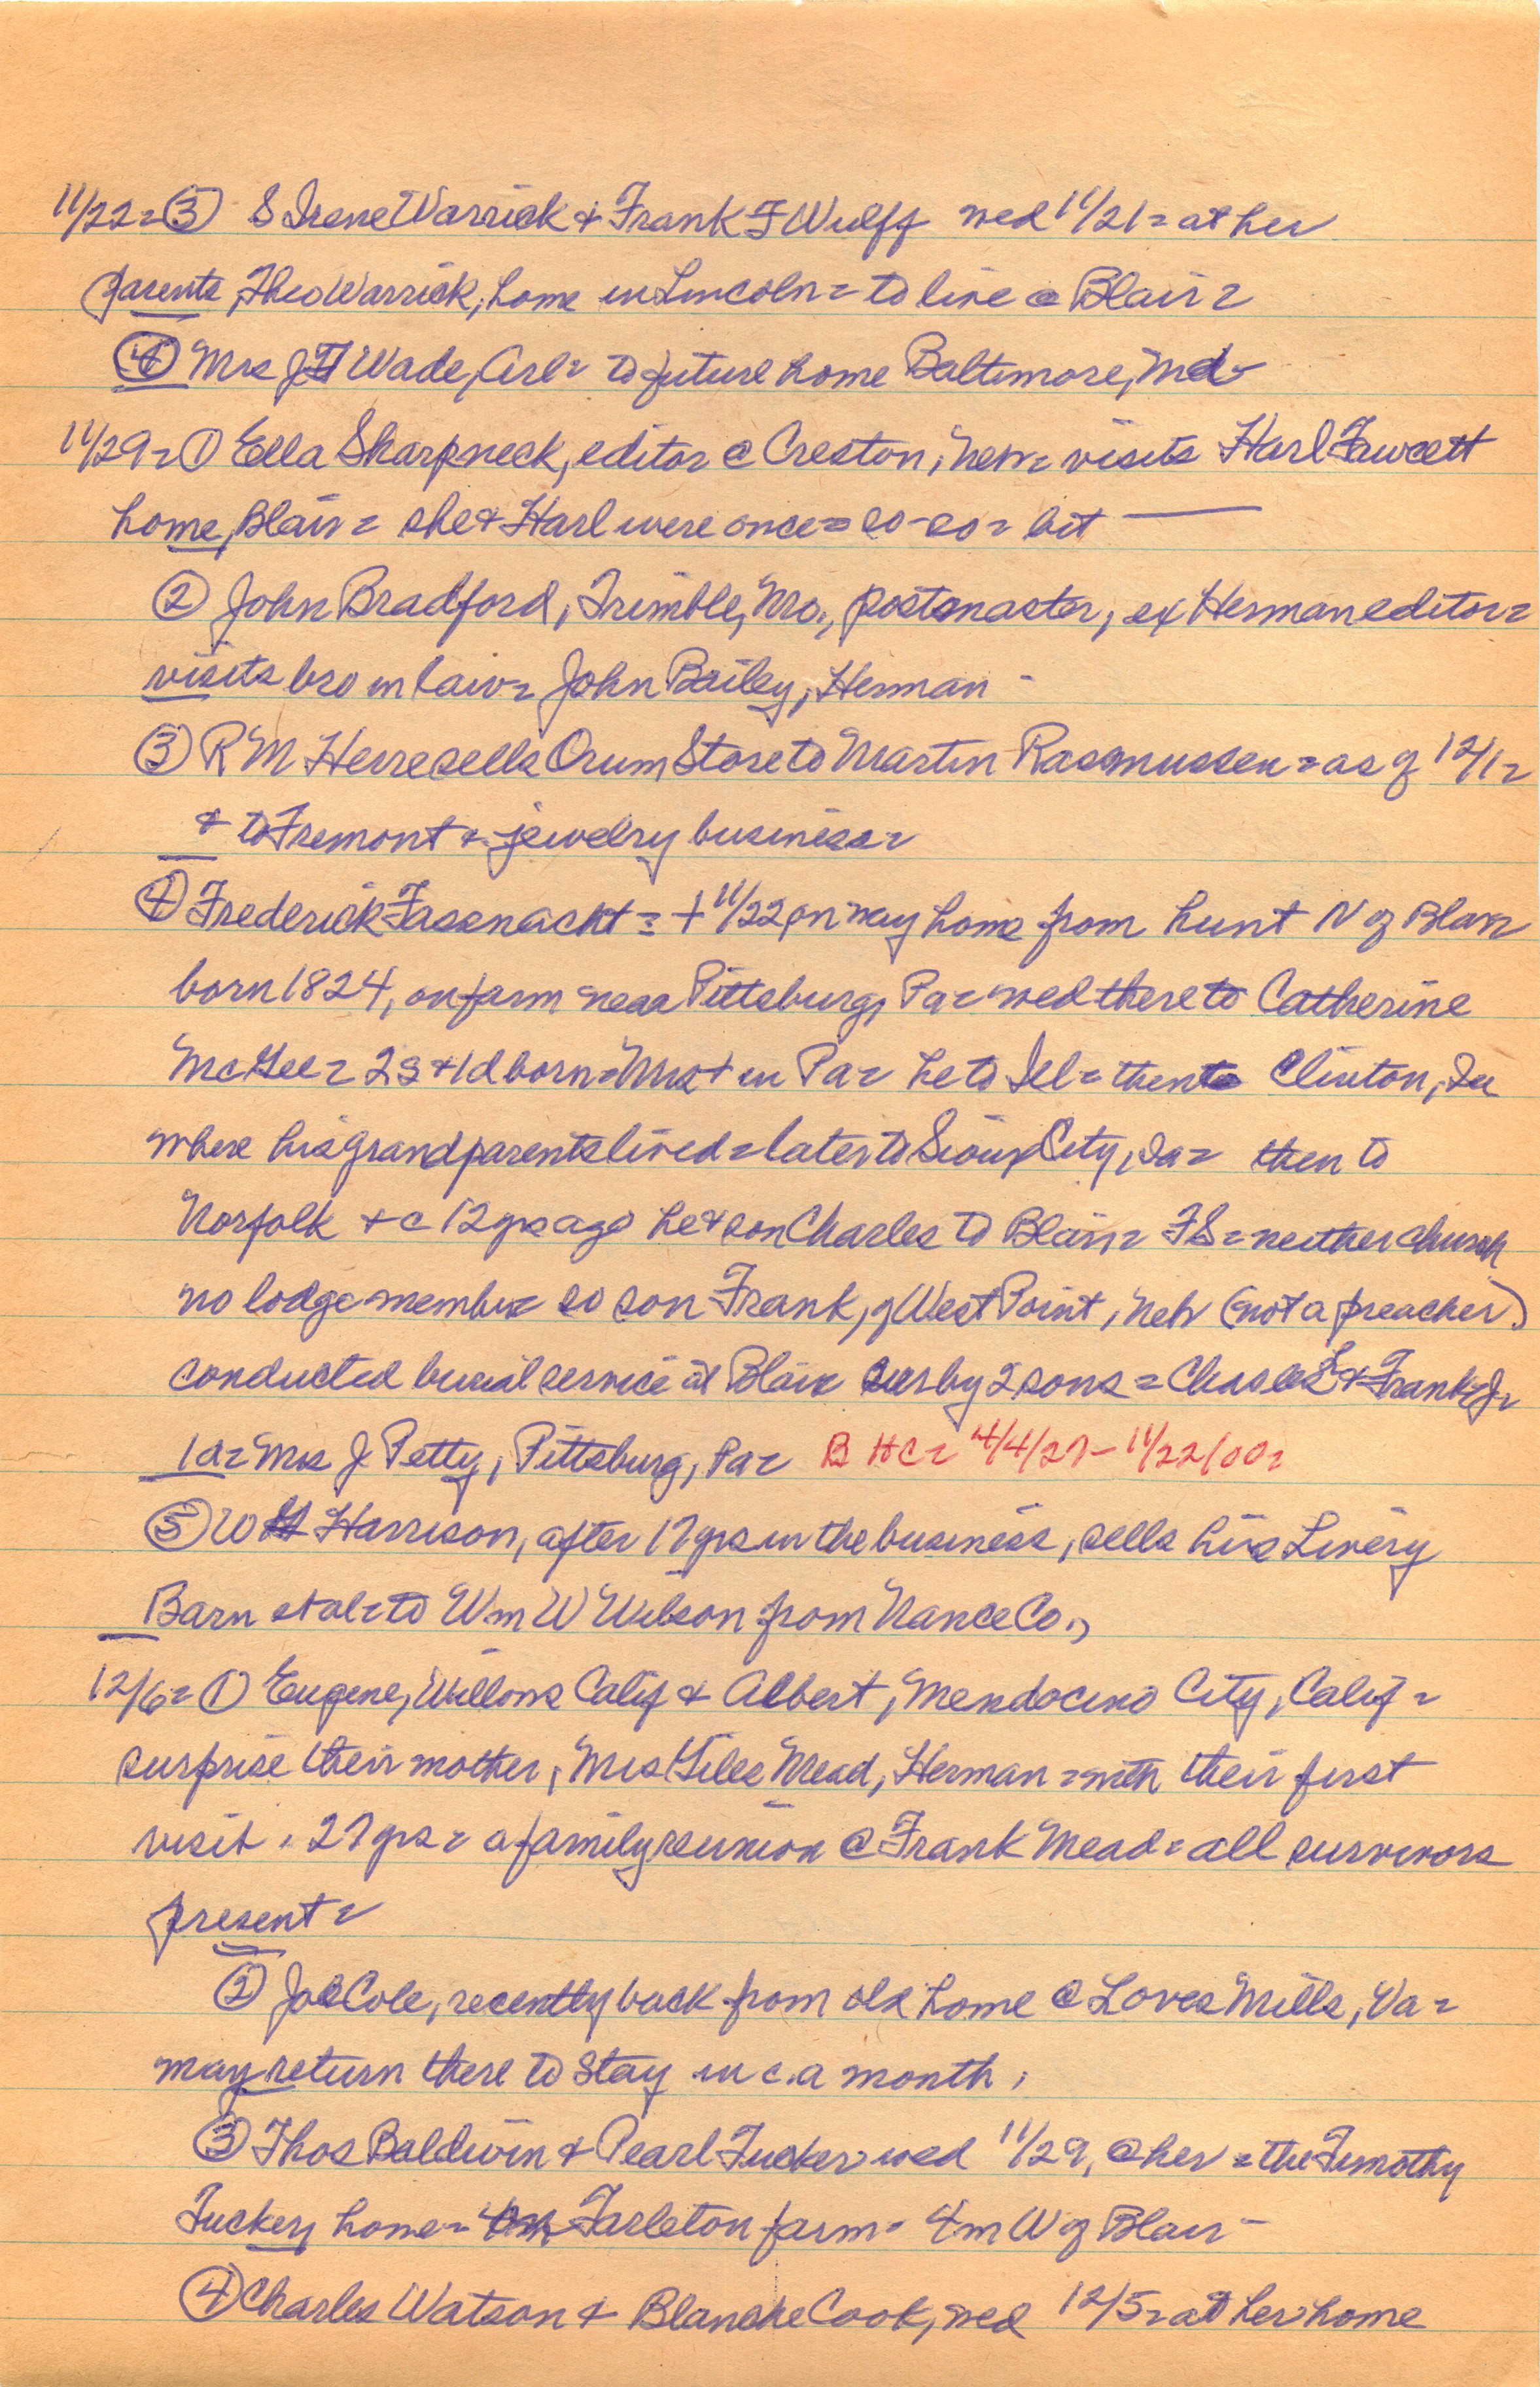 11/22= ③ S Irene Warrick & Frank F Wulff wed 11/21= at her
parents, Theo Warrick, home in Lincoln= to live @ Blair=
④ Mrs J H Wade, Arl= to future home Baltimore, Md-
11/29= ① Ella Sharpneck, editor @ Creston, Neb= visits Harl Fawcett
home, Blair= she & Harl were once= so-so= bit ———
② John Bradford, Trimble, Mo., postmaster, ex Herman editor=
visits bro in law= John Bailey, Herman -
③ R M Herre sells Orum Store to Martin Rasmussen= as of 12/1=
& to Fremont & jewelry business=
④ Frederick Fasenacht= + 11/22 on way home from hunt N of Blair
born 1824, on farm near Pittsburg, Pa= wed there to Catherine
McGee= 2s & 1d born= Mrs + in Pa= he to Ill= then to Clinton, Ia
where his grandparents lived= later to Sioux City, Ia= then to
Norfolk & c 12 yrs ago he & son Charles to Blair= FS= neither church
no lodge member so son Frank, of West Point, Neb (not a preacher)
conducted burial service at Blair Sur by 2 sons= Charles L & Frank J=
1d= Mrs J Petty, Pittsburg, Pa= B HC= 4/4/27- 11/22/00=
⑤ W H Harrison, after 17 yrs in the business, sells his Livery
Barn et al= to Wm W Wilson from Nance Co.,
12/6= ① Eugene, Willows Calif & Albert, Mendocino City, Calif=
surprise their mother, Mrs Giles Mead, Herman= with their first
visit, 27 yrs= a family reunion @ Frank Mead= all survivors
present=
② Joe Cole, recently back from old home @ Loves Mills, Va=
may return there to stay in c.a month,
③ Thos Baldwin & Pearl Tucker wed 11/29, @ her= the Timothy
Tucker, home= Tarleton farm- 4 m W of Blair-
④ Charles Watson & Blanche Cook, wed 12/5= at her home